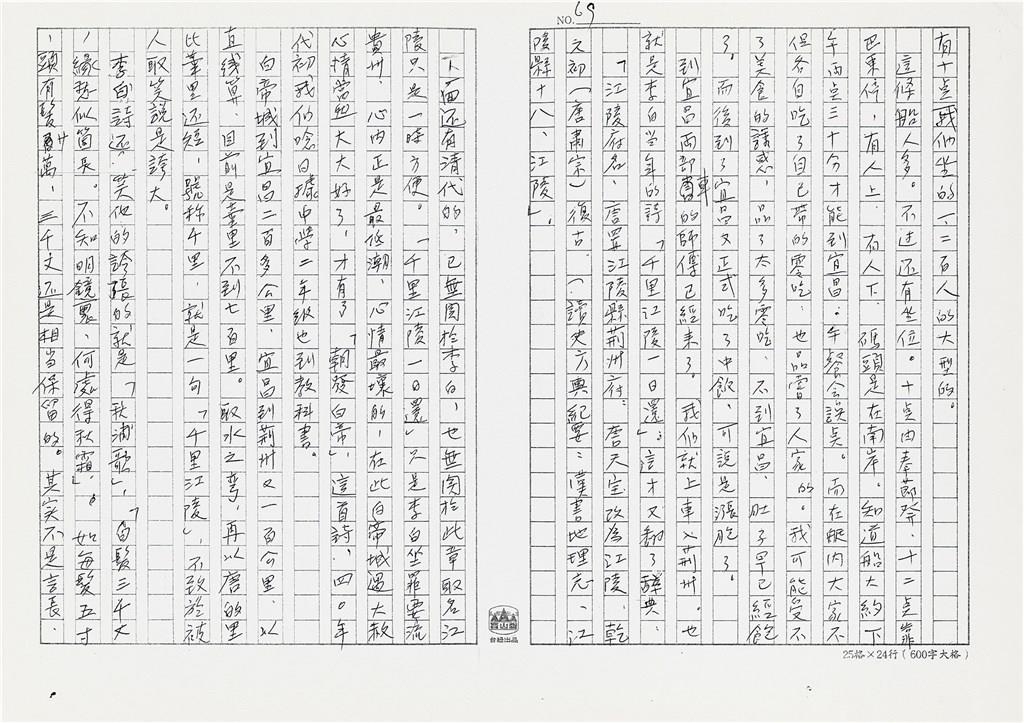 NO. 69
有十点我们坐的一二百人的大型的。
這條船人多。不过还有坐位。十点由奉節発,十二点靠
巴東停,有人上,有人下。碼頭是在南岸。知道船大約下
午两点三十分才能到宜昌。午餐会誤点。而在船内大家不
但各自吃了自已帶的零吃,也品嘗了人家的。我可能受不
了美食的誘惑,品了太多零吃,不到宜昌,肚子早已經飽
了。而後到了宜昌又正式吃了中飯,可説是漲飽了。
到宜昌两部車的師傅已經来了。我们就上車入荆州。也
就是李白当年的詩「千里江陵一日還」。這才又翻了辞典,
「江陵府名,唐置江陵縣荆州府,唐天宝改為江陵,乾
元初(唐肃宗)復古。(:讀史方輿紀要:漢書地理志、江
陵縣十八、江陵」。
下面还有清代的,已無関於李白,也無関於此章取名江
陵只是一時方便。「千里江陵一日還」只是李白坐罪要流
貴州,心内正是最低潮,心情最壞的,在此白帝城遇大赦
心情当然大大好了,才有了「朝發白帝」,這首詩,四〇年
代初我们唸日據中學二年级也到教科書。
白帝城到宜昌二百多公里,宜昌到荆州又一百公里,以
直线算,目前是華里不到七百里。取水之弯,再以唐的里
比華里还短,號称千里,就是一句「千里江陵」,不致於被
人取笑説是誇大。
李白詩还,笑他的誇張的就是「秋浦歌」,「白髮三千丈
,緣愁似箇長。不知明鏡裏,何處得秋霜」。如每髮五寸
,頭有髮廿萬,三千丈还是相当保留的。其実不是言長,
25格×24行(600字大格)